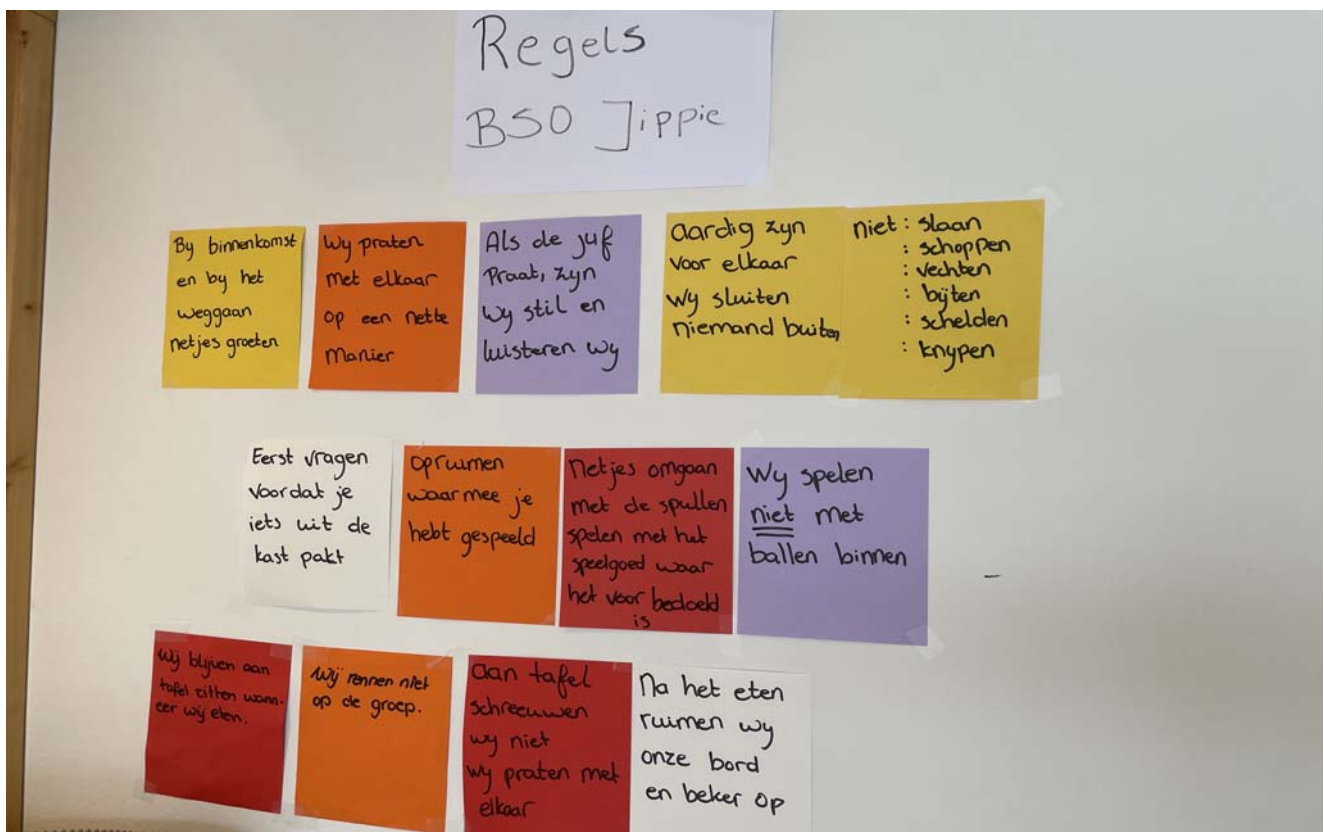 Regels
BSO Jippie
By binnenkomst
en by het
weggaan
netjes groeten
Wy praten
met elkaar
op een nette
manier
Als de juf
Praat, zyn
wy stil en
luisteren wy
aardig zyn
voor elkaar
Wy sluiten
niemand buiten
niet : slaan
: schoppen
: vechten
: bijten
: schelden
: knypen
Eerst vragen
voordat je
iets uit de
kast pakt
opruimen
waarmee je
hebt gespeeld
Netjes omgaan
met de spullen
spelen met het
speelgoed waar
het voor bedoeld
is
Wy spelen
niet met
ballen binnen
Wij blijven aan
tafel zitten wann-
eer wij eten.
Wij rennen niet
op de groep.
aan tafel
schreeuwen
wy niet
wy praten met
elkaar
Na het eten
ruimen wy
onze bord
en beker op